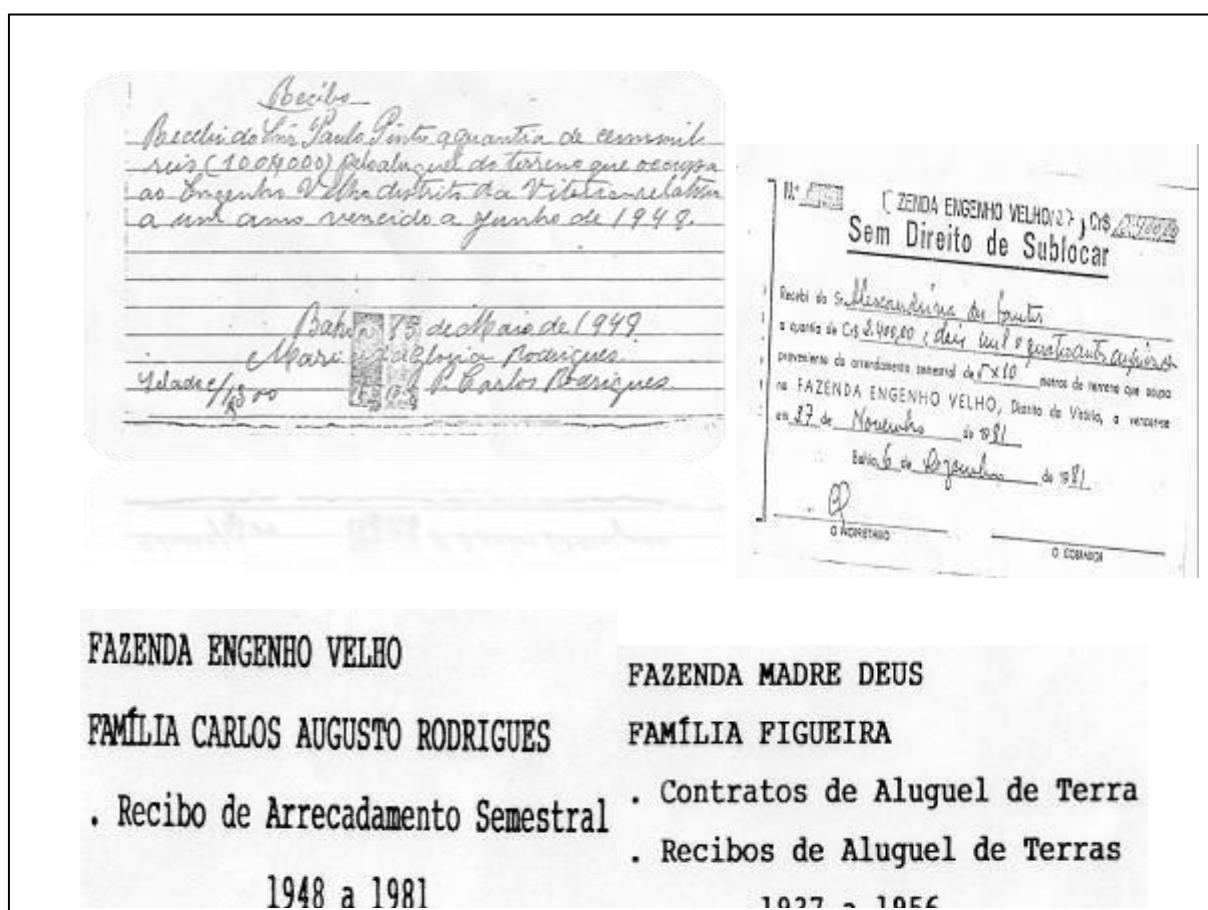 Recibo
Recebi do Snr Paulo Pinto a quantia de cem mil
reis (100$000) pelo aluguel do terreno que occupa
ao Engenho Velho districto da Victoria relativo
a um anno vencido a Junho de 1948.
Bahia 15 de Maio de 1949
Maria da Gloria Rodrigues
P. Carlos Rodrigues
Nº
ZENDA ENGENHO VELHO (27) Cr$ 2.400,00
Sem Direito de Sublocar
Recebi do Sr. Alexandrina dos Santos
a quantia de Cr$ 2.400,00 ( dois mil e quatrocentos cruzeiros
proveniente do arrendamento semestral de 5x10 metros de terreno que ocupa
na FAZENDA ENGENHO VELHO, Distrito da Vitória, a vencer-se
em 27 de Novembro de 1981
Bahia, 6 de Dezembro de 1981
O PROPRIETÁRIO
O COBRADOR
FAZENDA ENGENHO VELHO
FAMÍLIA CARLOS AUGUSTO RODRIGUES
. Recibo de Arrecadamento Semestral
1948 a 1981
FAZENDA MADRE DEUS
FAMÍLIA FIGUEIRA
. Contratos de Aluguel de Terra
. Recibos de Aluguel de Terras
1937 a 1956